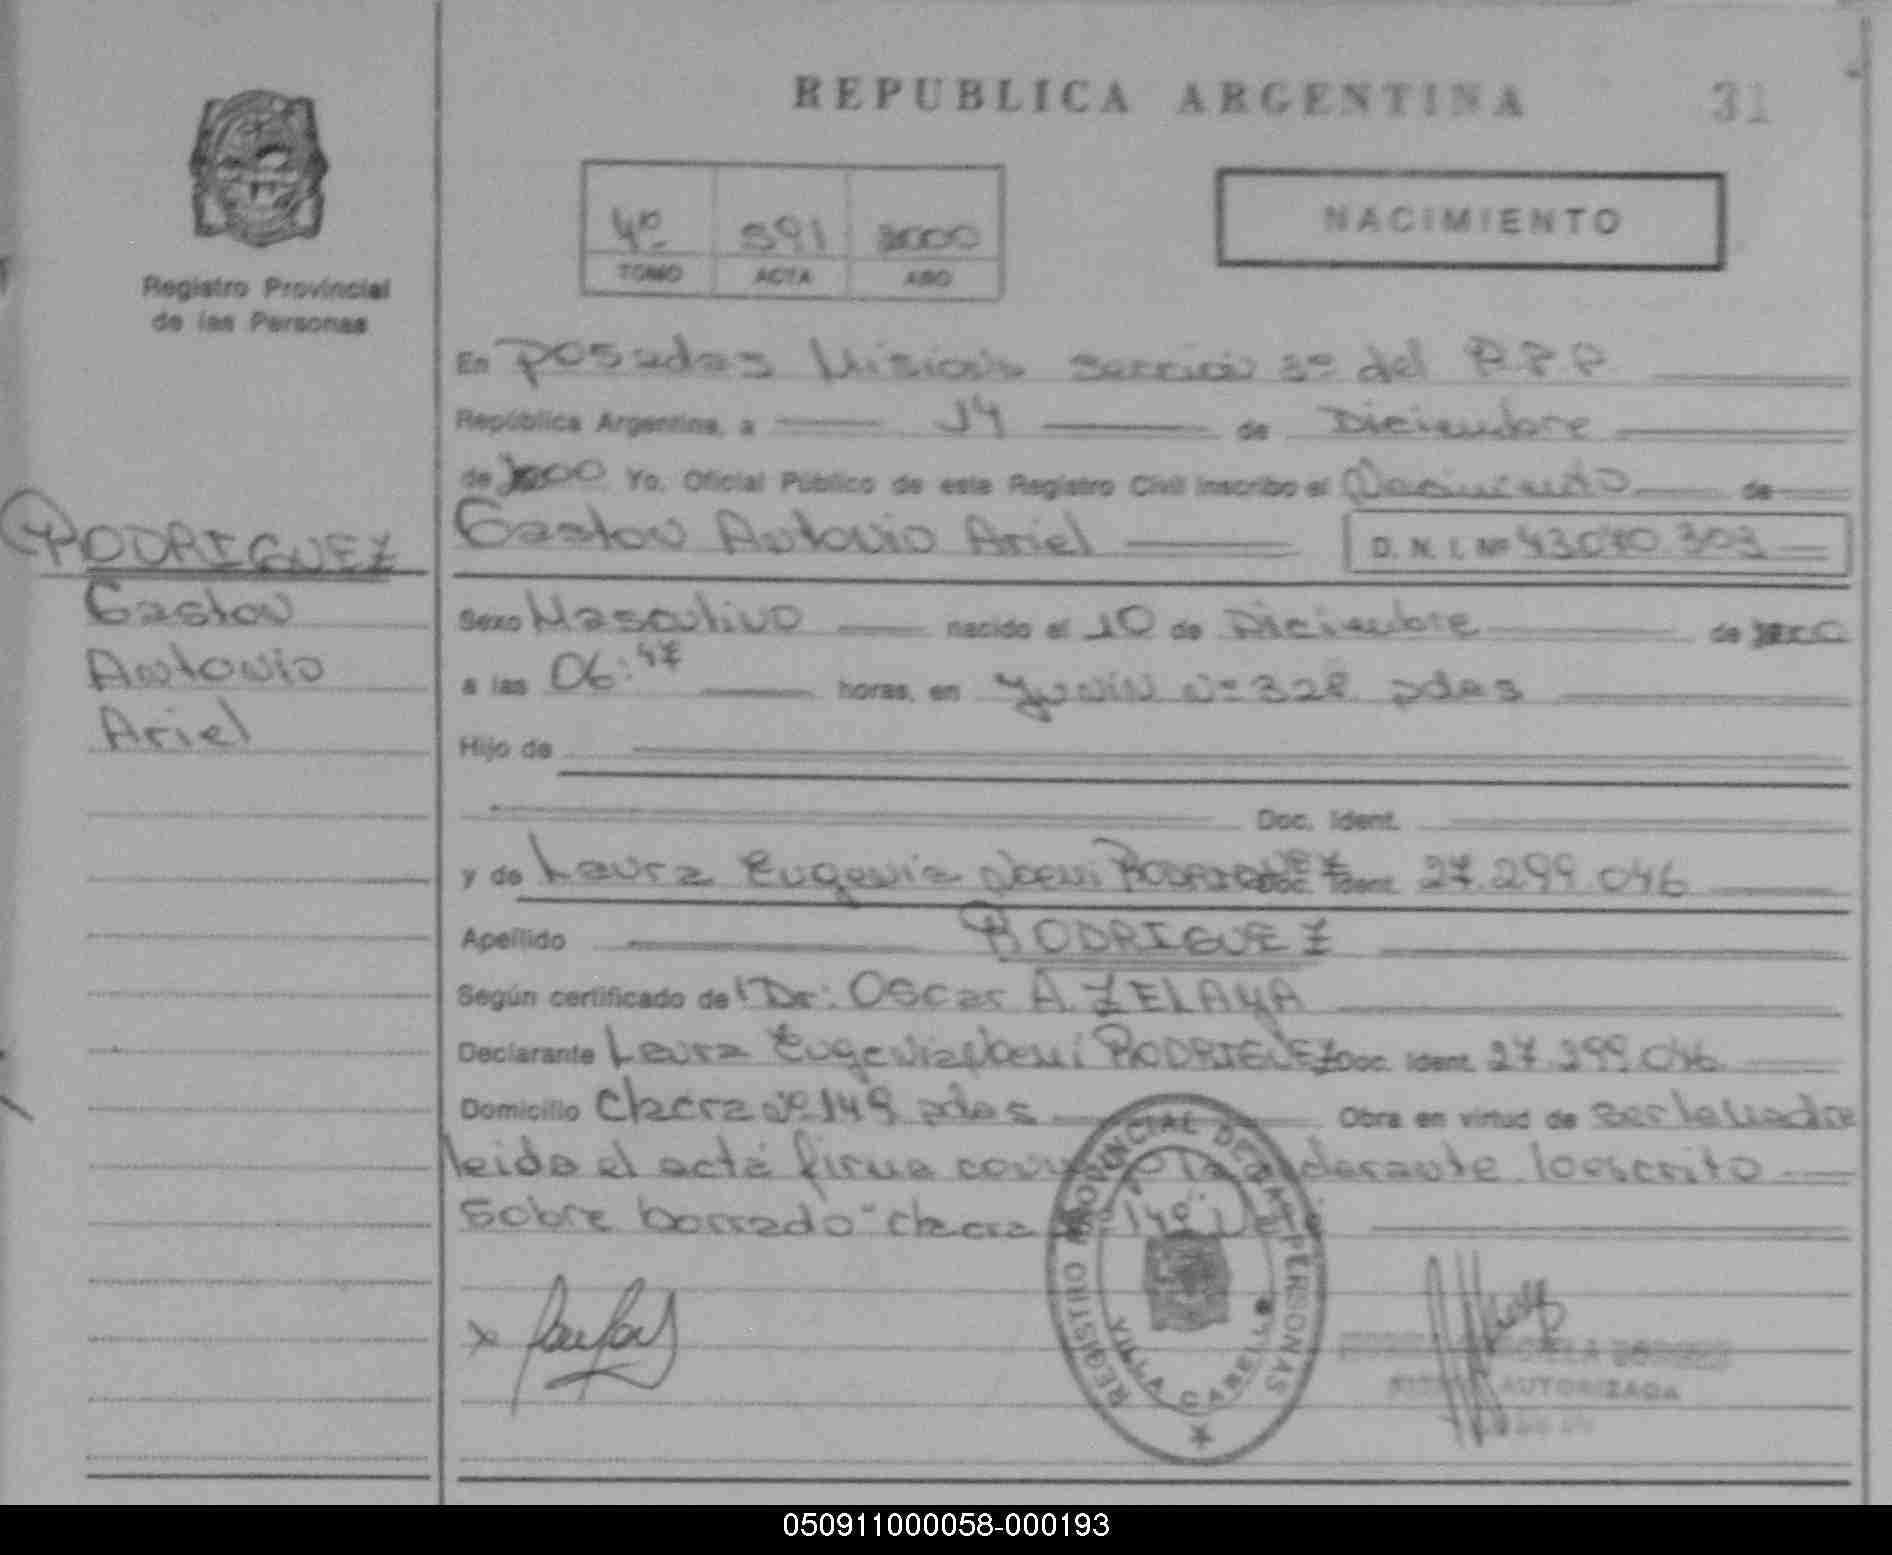 REPUBLICA ARGENTINA
31
4º 591 2000
TOMO ACTA AÑO
NACIMIENTO
Registro Provincial
de las Personas
En Posadas Misiones sección 3º del R.P.P
República Argentina, a 14 de Diciembre
de 2000 Yo, Oficial Público de este Registro Civil inscribo el Nacimiento de
Gaston Antonio Ariel D. N. I. Nº
RODRIGUEZ
Gaston
Antonio
Ariel
Sexo Masculino nacido el 10 de Diciembre de 2000
a las 06:47 horas, en Junin Nº 328 pdas
Hijo de
Doc. Ident.
y de Laura Eugenia Noemi RODRIGUEZ Doc. Ident. 27.299.046
Apellido RODRIGUEZ
Según certificado del Dr: Oscar A. ZELAYA
Declarante Laura Eugenia Noemi RODRIGUEZ Doc. Ident. 27.299.046
Domicilio Chacra Nº 149 pdas Obra en virtud de ser la madre
leida el acta firma la declarante lo escrito
sobre borrado "chacra 149"
REGISTRO PROVINCIAL DE LAS PERSONAS
VILLA CABELLO
AUTORIZADA
050911000058-000193